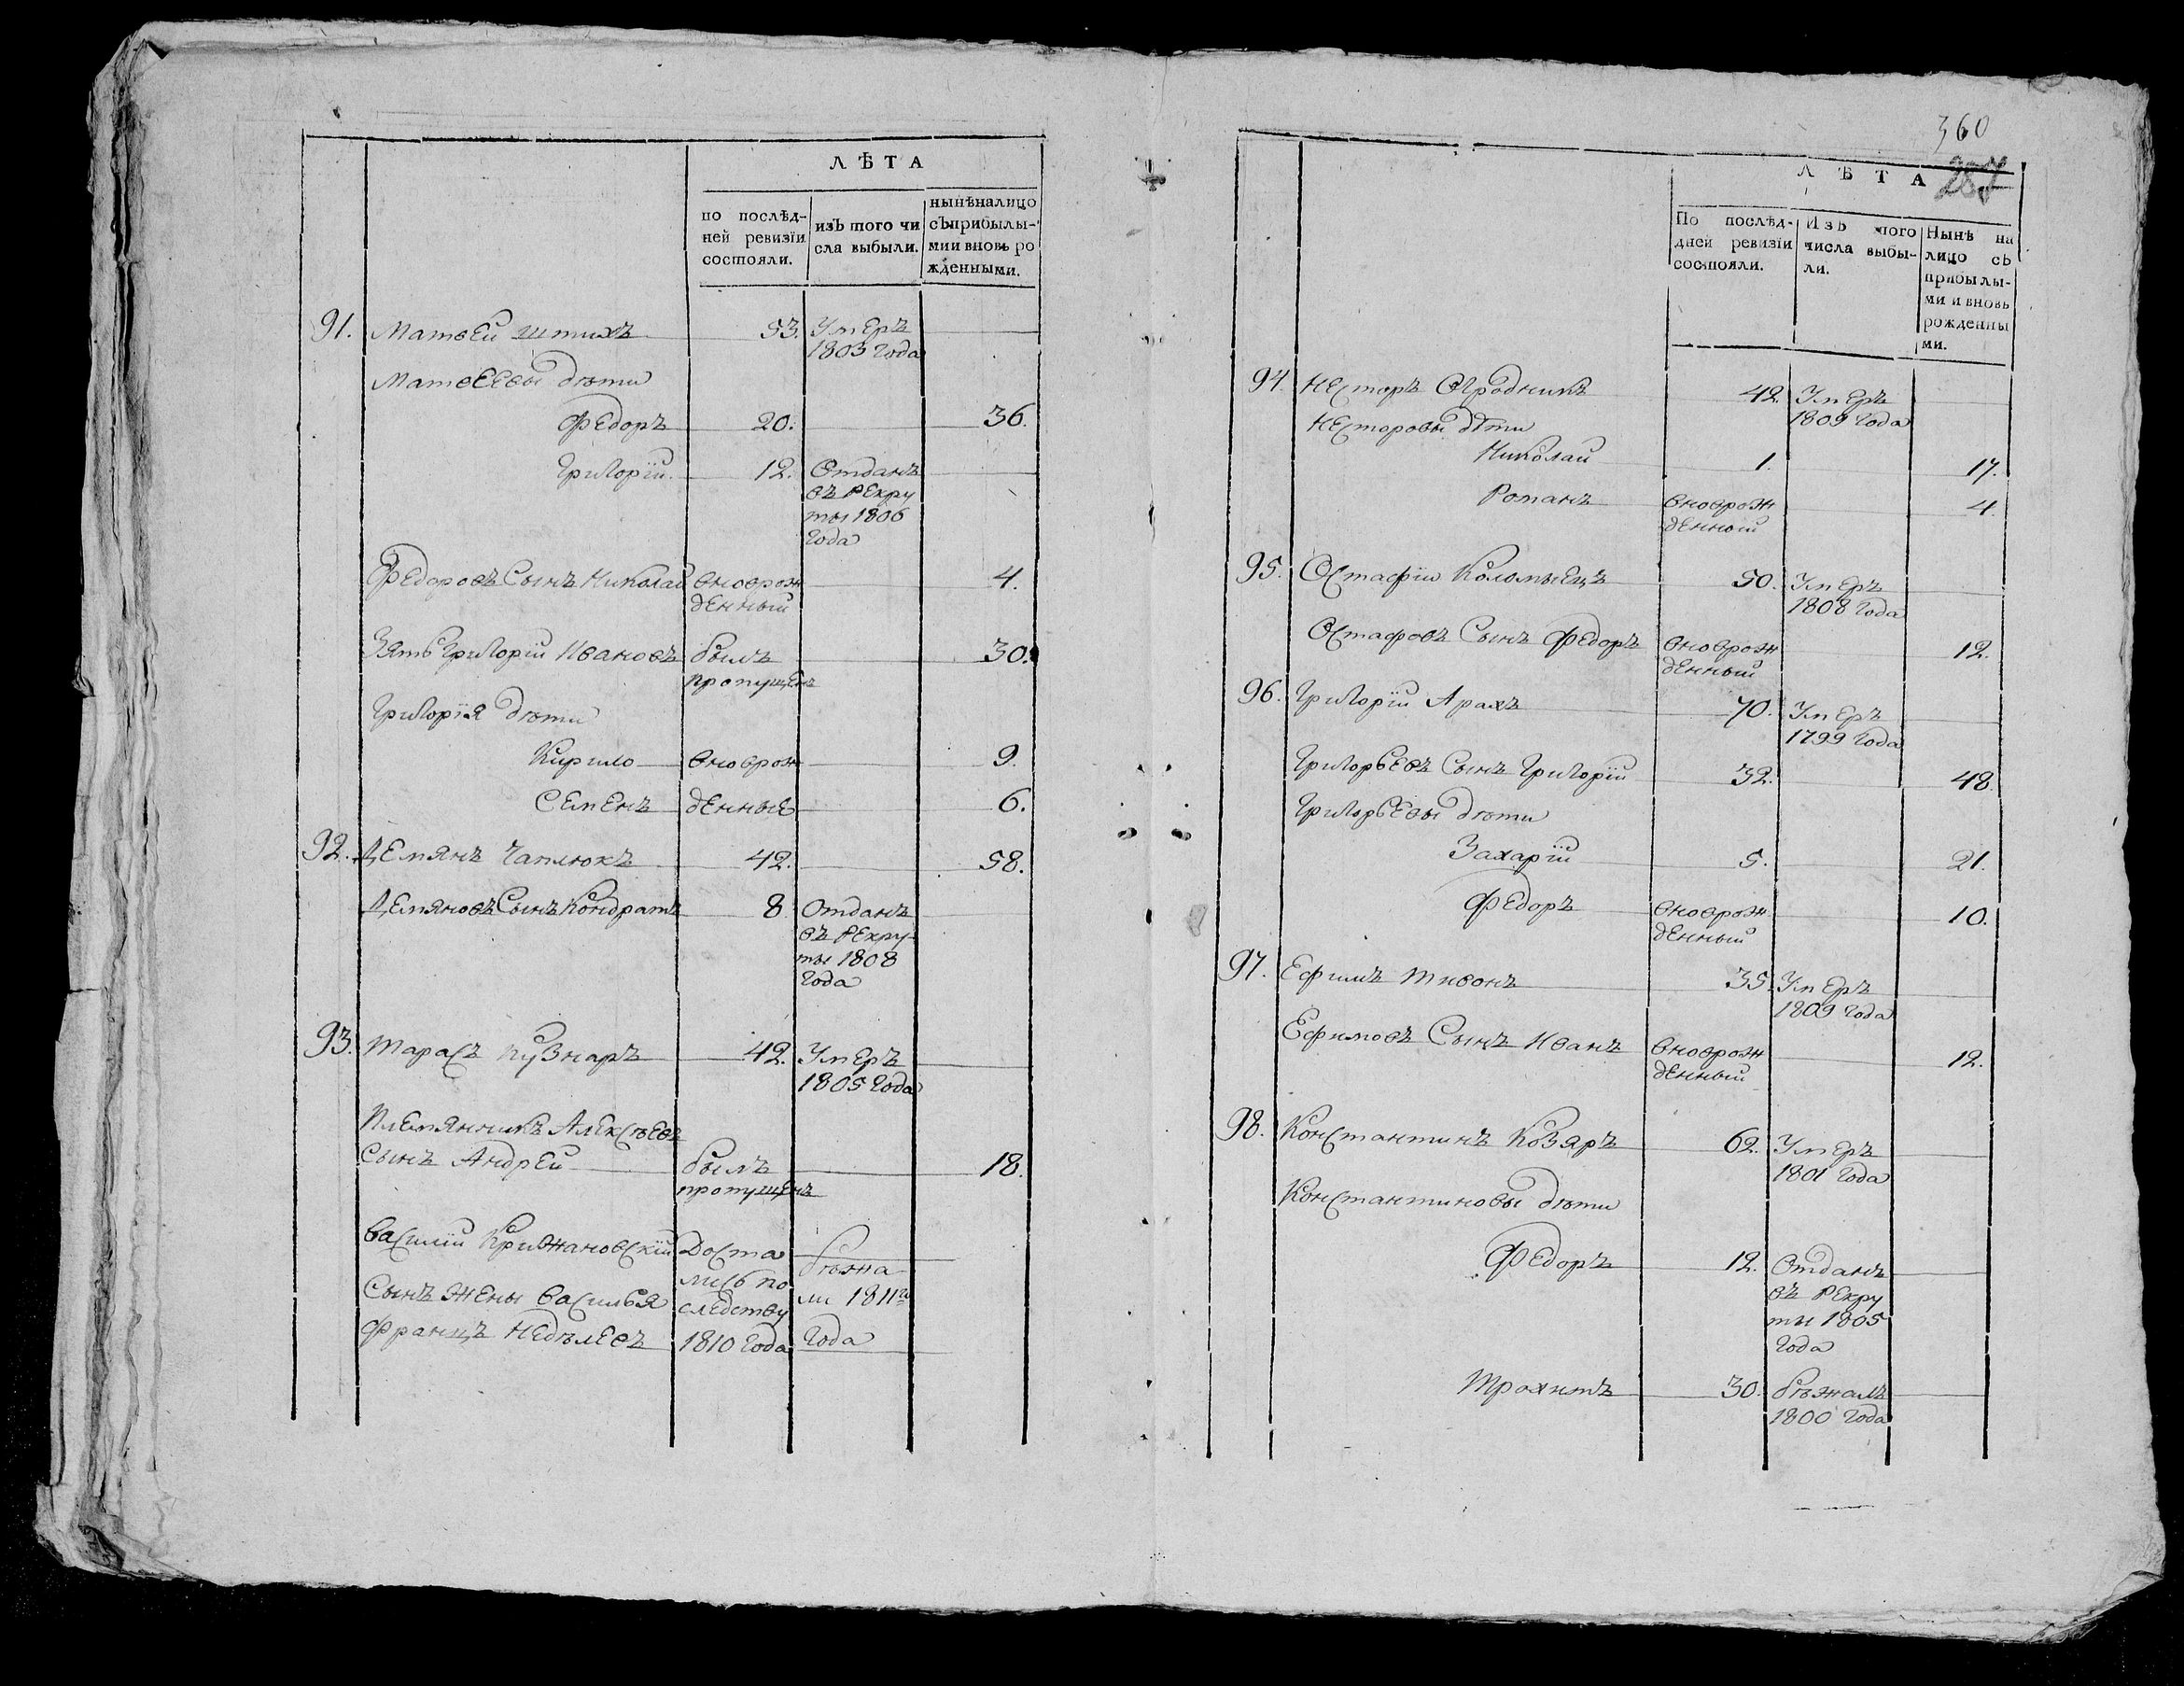 ЛѢТА
по послѣд-
ней ревизіи
состояли.
изъ того чи
сла выбыли.
нынѣ налицо
съ прибылы-
ми и вновь ро
жденными.
91. Матвей Штихъ 53. Умеръ
1803 года
Матвеевы дѣти
Федоръ 20. 36.
Григорій 12. Отданъ
въ рекру
ты 1806
года
Федоровъ Сынъ Николай вноврож 4.
денный
Зять Григорій Ивановъ былъ 30.
пропущенъ
Григорія дѣти
Кирило вноврож 9.
Семенъ денные 6.
92. Демянъ Чаплюкъ 42. 58.
Демяновъ Сынъ Кондратъ 8. Отданъ
въ рекру-
ты 1808
года
93. Тарасъ Кузнаръ 42. Умеръ
1805 года
Племянникъ Алексѣевъ
Сынъ Андрей былъ 18.
пропущенъ
Василій Крижановскій Доста бѣжа
Сынъ жены Василья лись по ли 1811го
следству
Францъ Неделевъ 1810 года года
360
ЛѢТА
По послѣд-
дней ревизіи
состояли.
Изъ того
числа выбы-
ли.
Нынѣ на
лицо съ
прибылы-
ми и вновь
рожденны
ми.
94. Несторъ Огродникъ 42. Умеръ
1809 года
Несторовы дѣти
Николай 1. 17.
Романъ вноврож 4.
денной
95. Остафій Коломыецъ 50. Умеръ
1808 года
Остафовъ Сынъ Федоръ вноврож 12.
денный
96. Григорій Арахъ 70. Умеръ
1799 года
Григорьевъ Сынъ Григорій 32. 48.
Григорьевы дѣти
Захарій 5. 21.
Федоръ вноврож 10.
денный
97. Ефимъ Тивонъ 35. Умеръ
1809 года
Ефимовъ Сынъ Иванъ вноврож 12.
денный
98. Константинъ Козяръ 62. Умеръ
1801 года
Константиновы дѣти
Федоръ 12. Отданъ
въ рекру
ты 1805
года
Трохимъ 30. бѣжалъ
1800 года